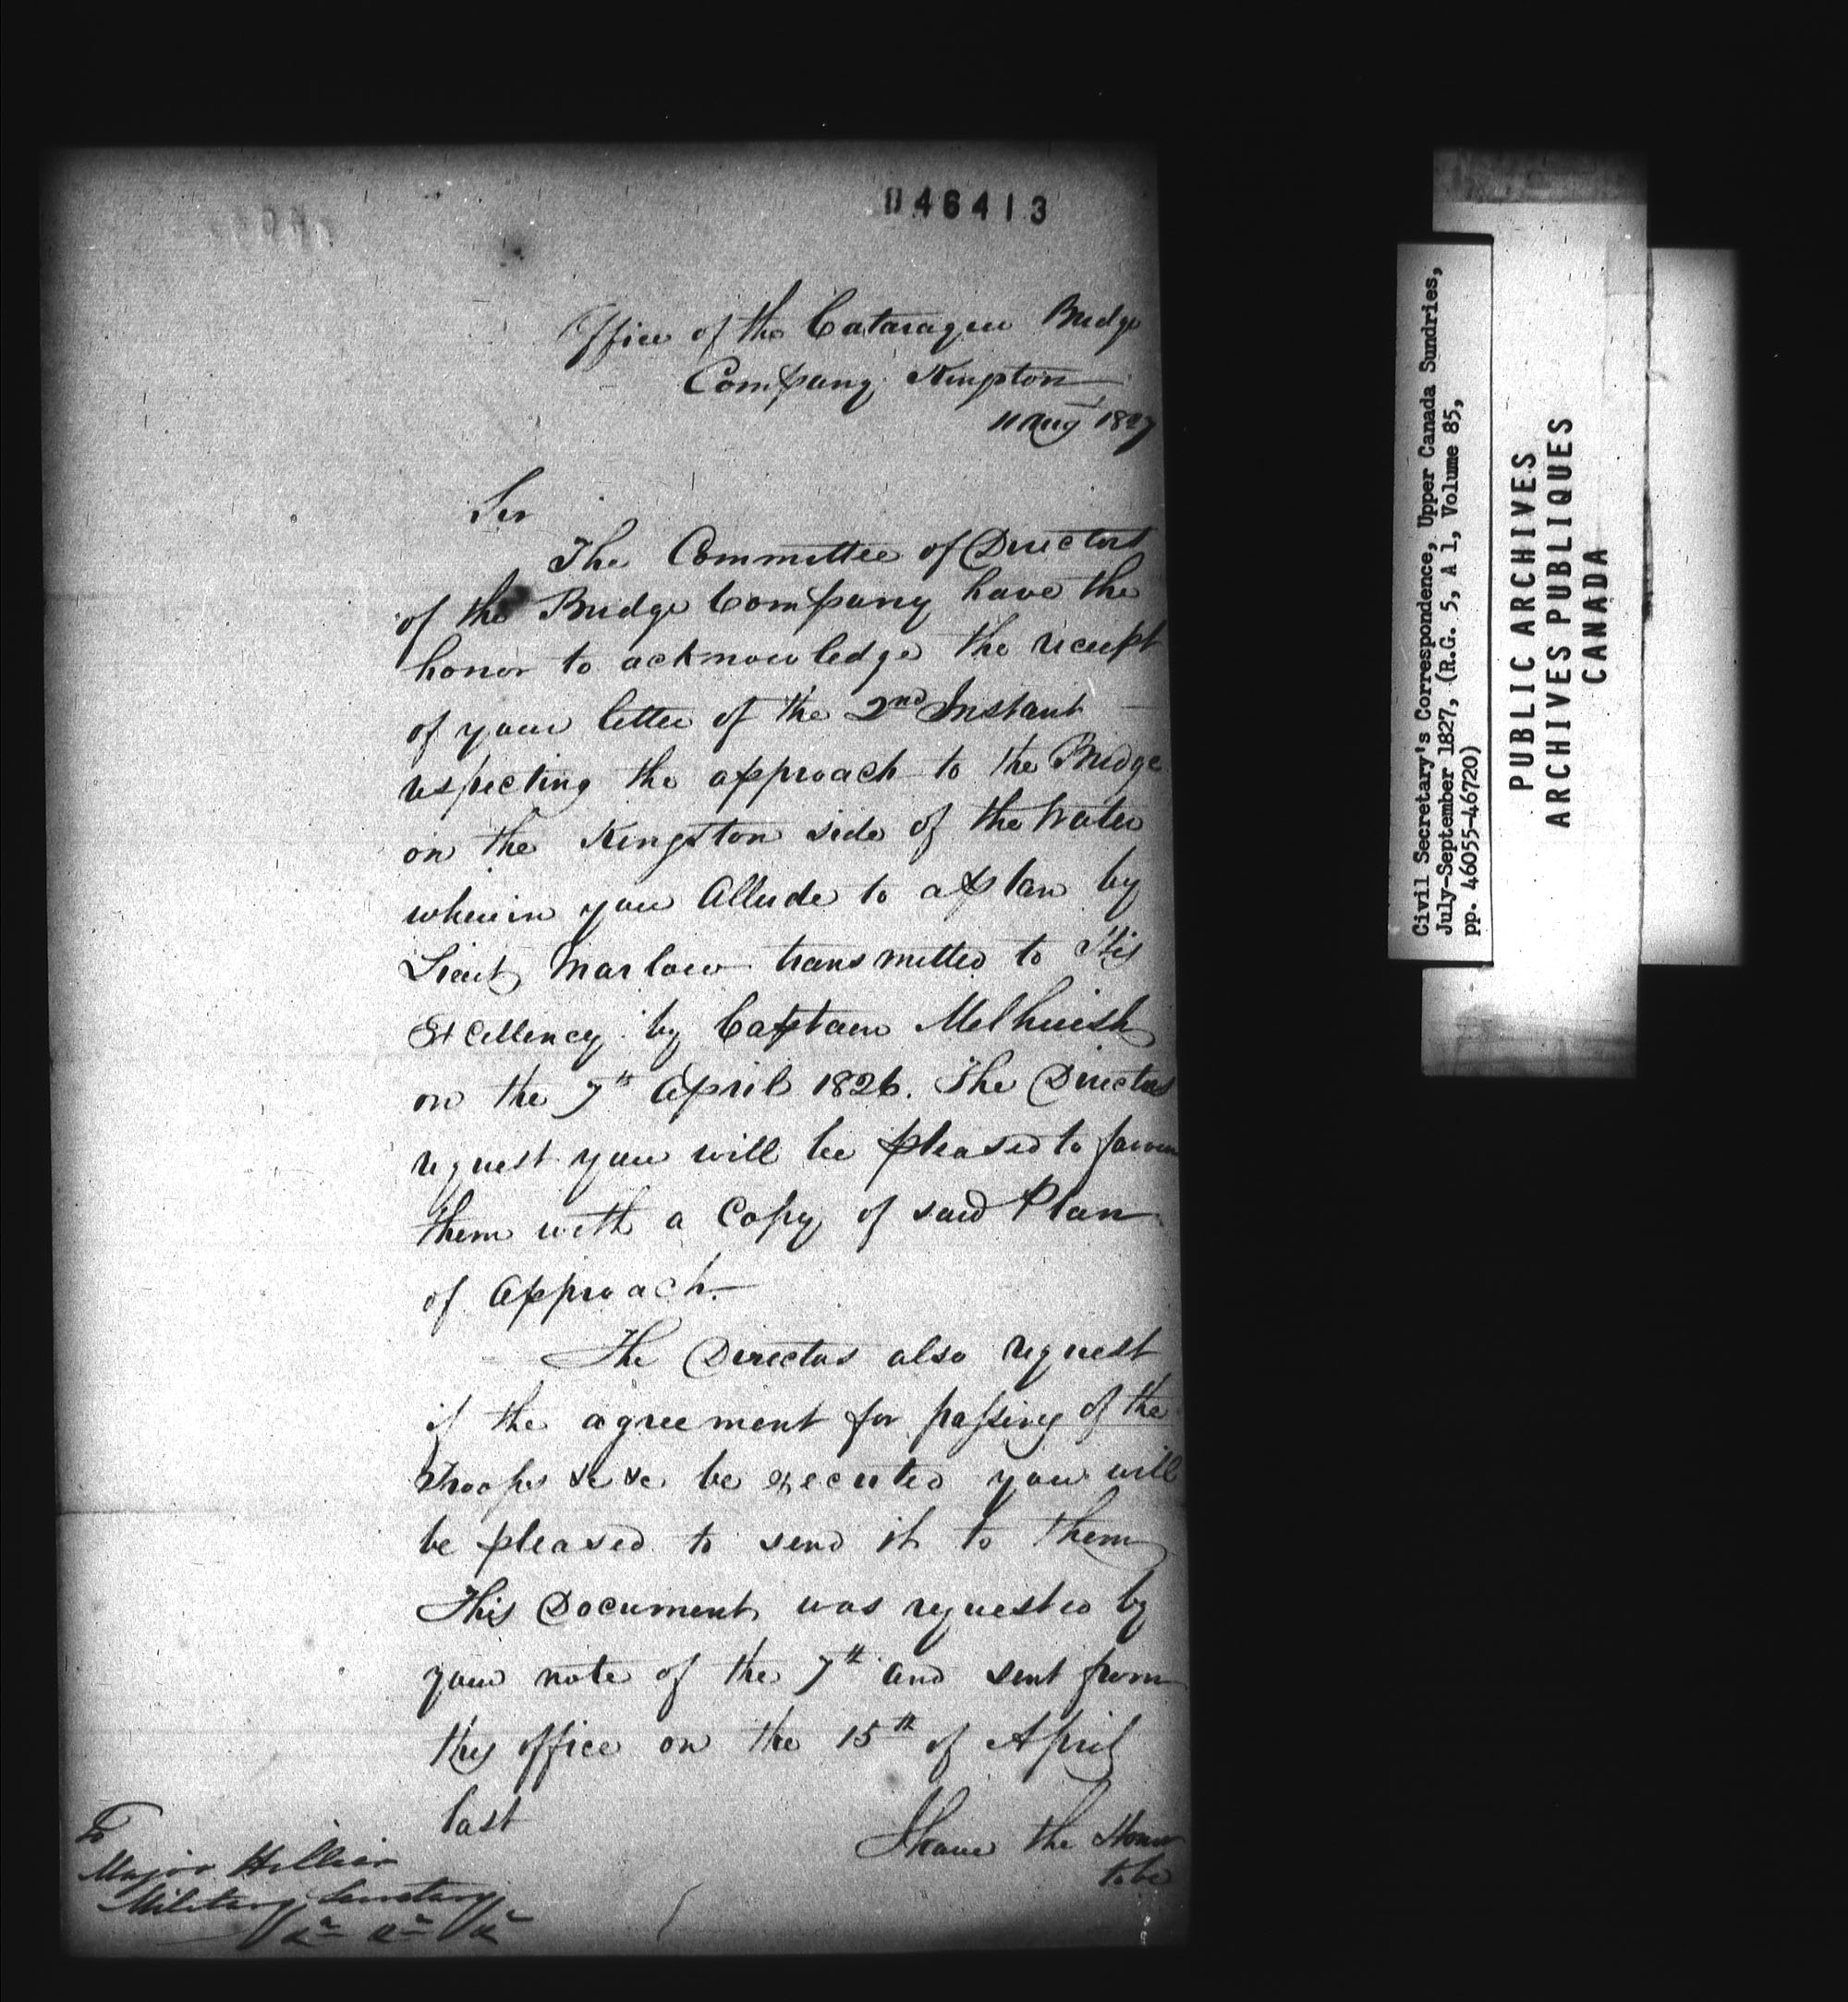 046413
Office of the Cataraqui Bridge
Company Kingston
11 Aug 1827
Sir
The Committee of Directors
of the Bridge Company have the
honor to acknowledge the receipt
of your letter of the 2nd Instant
respecting the approach to the Bridge
on the Kingston side of the Water
wherein you Allude to a plan by
Lieut Marlow transmitted to His
Excellency by Captain Melhuish
on the 7th April 1826. The Directors
request you will be pleased to favour
them with a Copy of said Plan
of Approach.
The Directors also request
if the agreement for passing of the
Troops &c &c be executed you will
be pleased to send it to them
This Document was requested by
your note of the 7th and sent from
this office on the 15th of April
last
I have the Honor
to be
To
Major Hillier
Military Secretary
&c &c &c
Civil Secretary's Correspondence, Upper Canada Sundries,
July-September 1827, (R.G. 5, A 1, Volume 85,
pp. 46055-46720)
PUBLIC ARCHIVES
ARCHIVES PUBLIQUES
CANADA